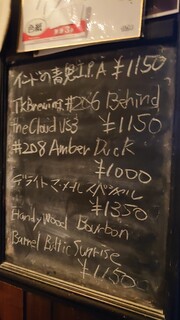 色紙
インドの青鬼 I.P.A ¥1150
TKBrewing #206 Behind
the Cloud Vs3 ¥1150
#208 Amber Duck
¥1000
デライトマーメイルスペシャル
¥1350
Handy Wood Bourbon
Barrel Baltic Sunrise
¥1150